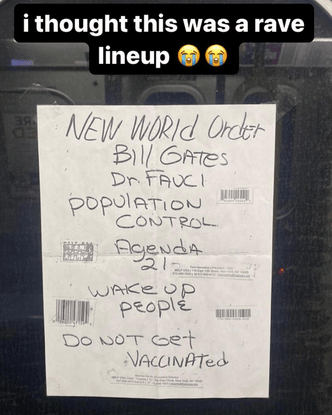 i thought this was a rave
lineup 😭😭
NEW WORLD Order
Bill GATES
Dr. FAUCI
POPULATION
CONTROL
AgendA
21
WAKE UP
PEOPLE
DO NOT Get
VACCINATed